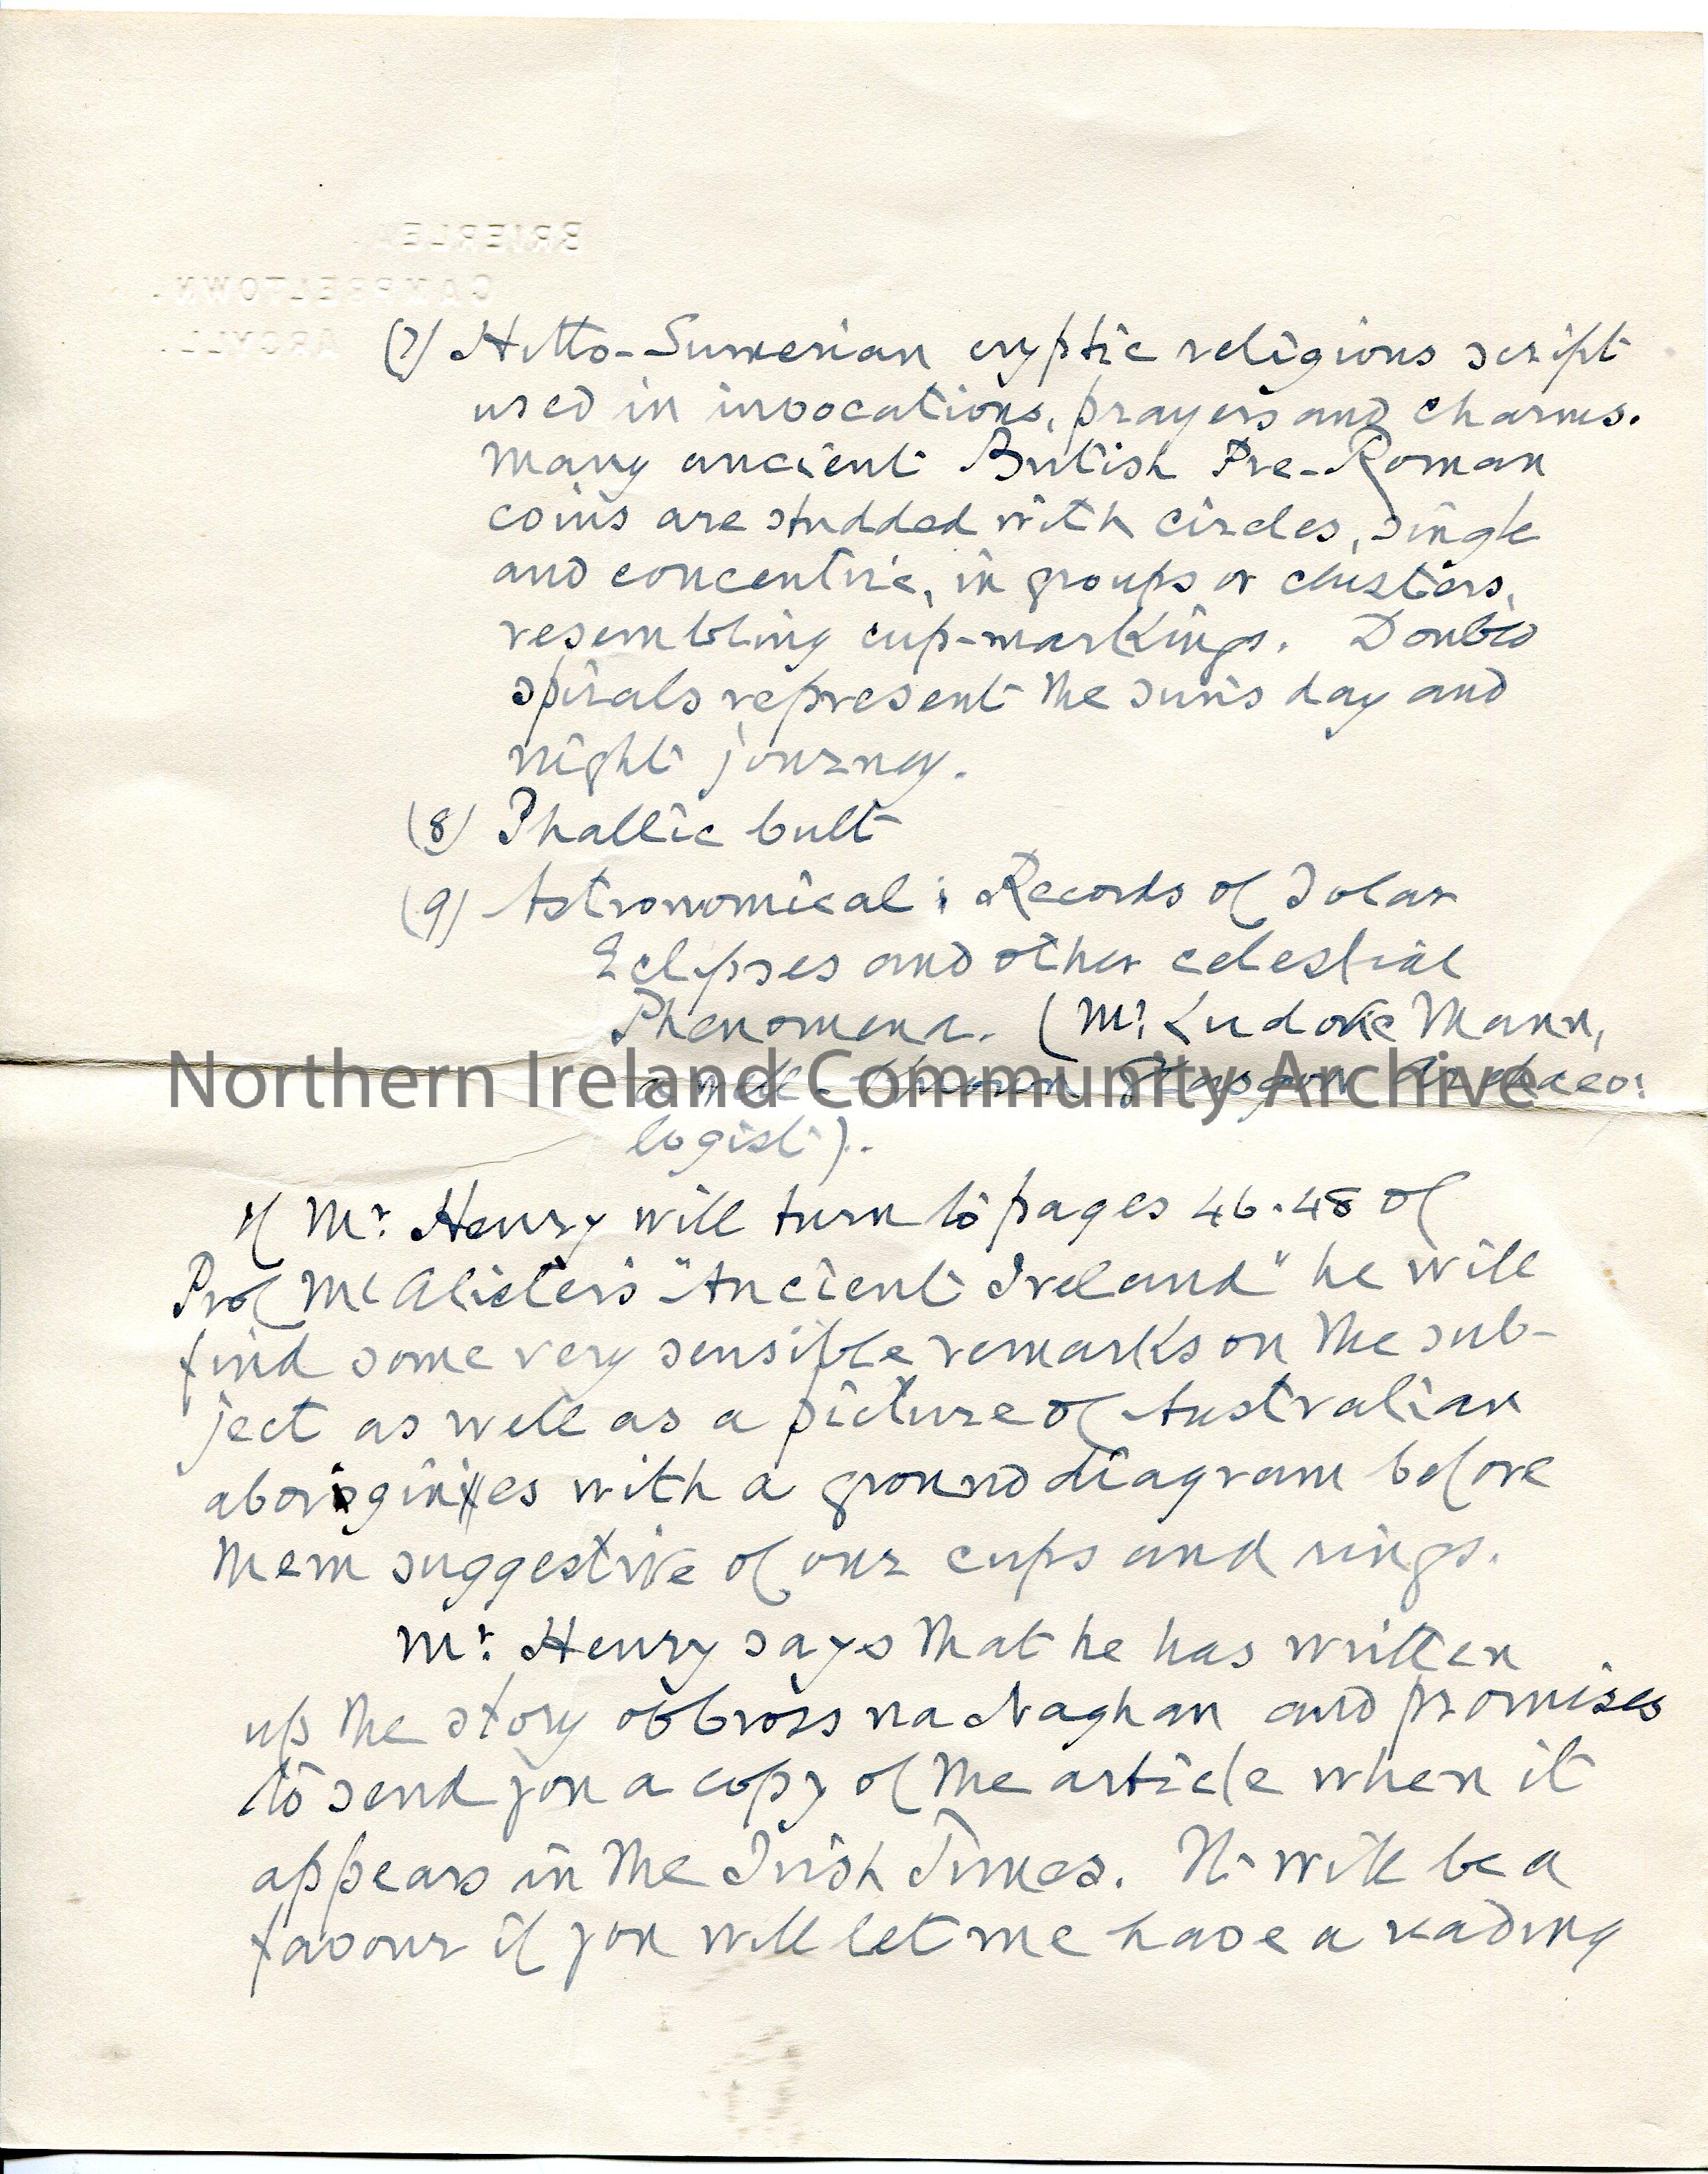 BRIERLEA
CAMPBELTOWN.
ARGYLL.
(7) Hitto-Sumerian cryptic religious script
used in invocations, prayers and charms.
Many ancient British Pre-Roman
coins are studded with circles, single
and concentric, in groups or clusters,
resembling cup-markings. Double
spirals represent the sun's day and
night journey.
(8) Phallic Cult
(9) Astronomical: Records of Solar
Eclipses and other celestial
Phenomena. (Mr. Ludovic Mann,
a well-known Glasgow Archaeo:
Northern Ireland Community Archive
logist).
If Mr. Henry will turn to pages 46-48 of
Prof McAlister's "Ancient Ireland" he will
find some very sensible remarks on the sub-
ject as well as a picture of Australian
aborigines with a ground diagram before
them suggestive of our cups and rings.
Mr. Henry says that he has written
up the story of Cross na Naghan and promises
to send you a copy of the article when it
appears in the Irish Times. It will be a
favour if you will let me have a reading